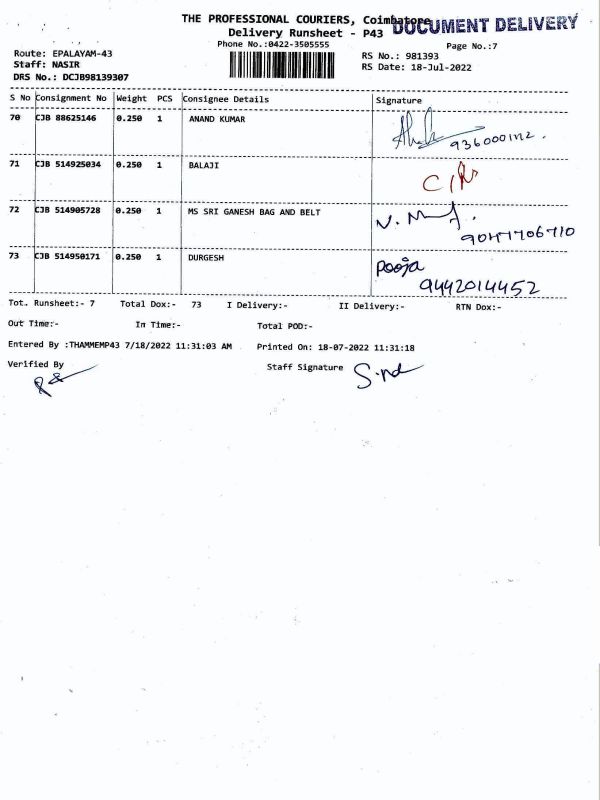 THE PROFESSIONAL COURIERS, Coimbatore
DOCUMENT DELIVERY
Delivery Runsheet - P43
Phone No.:0422-3505555
Page No.:7
Route: EPALAYAM-43
RS No.: 981393
Staff: NASIR
RS Date: 18-Jul-2022
DRS No.: DCJB98139307
S No Consignment No Weight PCS Consignee Details Signature
70 CJB 88625146 0.250 1 ANAND KUMAR
71 CJB 514925034 0.250 1 BALAJI
72 CJB 514905728 0.250 1 MS SRI GANESH BAG AND BELT
73 CJB 514950171 0.250 1 DURGESH
Pooja
9442014452
Tot. Runsheet:- 7 Total Dox:- 73 I Delivery:- II Delivery:- RTN Dox:-
Out Time:- In Time:- Total POD:-
Entered By :THAMMEMP43 7/18/2022 11:31:03 AM Printed On: 18-07-2022 11:31:18
Verified By Staff Signature